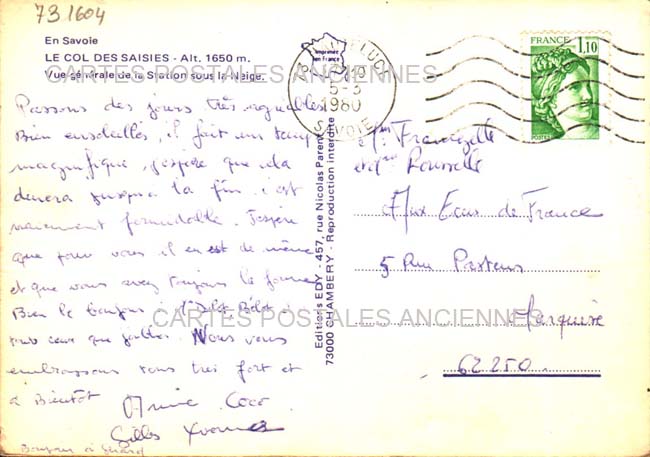 73 1604
En Savoie
LE COL DES SAISIES - Alt. 1650 m.
Vue générale de la Station sous la Neige.
CARTES POSTALES ANCIENNES
Imprimée
en France
5-3
1980
SAVOIE
FRANCE
1,10
POSTES
Passons des jours très agréables
Bien ensoleillés, il fait un temps
magnifique, j'espère que cela
durera jusqu'à la fin, c'est
vraiment formidable. J'espère
que pour vous il en est de même
et que vous avez toujours la forme
Bien le bonjour à
tous ceux que Nous vous
embrassons tous très fort et
à Bientôt
Coco
Gilles Yvonne
Bonjour à Gérard
Editions EDY - 457, rue Nicolas Parent
73000 CHAMBERY - Reproduction interdite
Mr Francezette
et Mme Rousselle
Aux Ecus de France
5 Rue Pasteur
Marquise
62250
CARTES POSTALES ANCIENNES